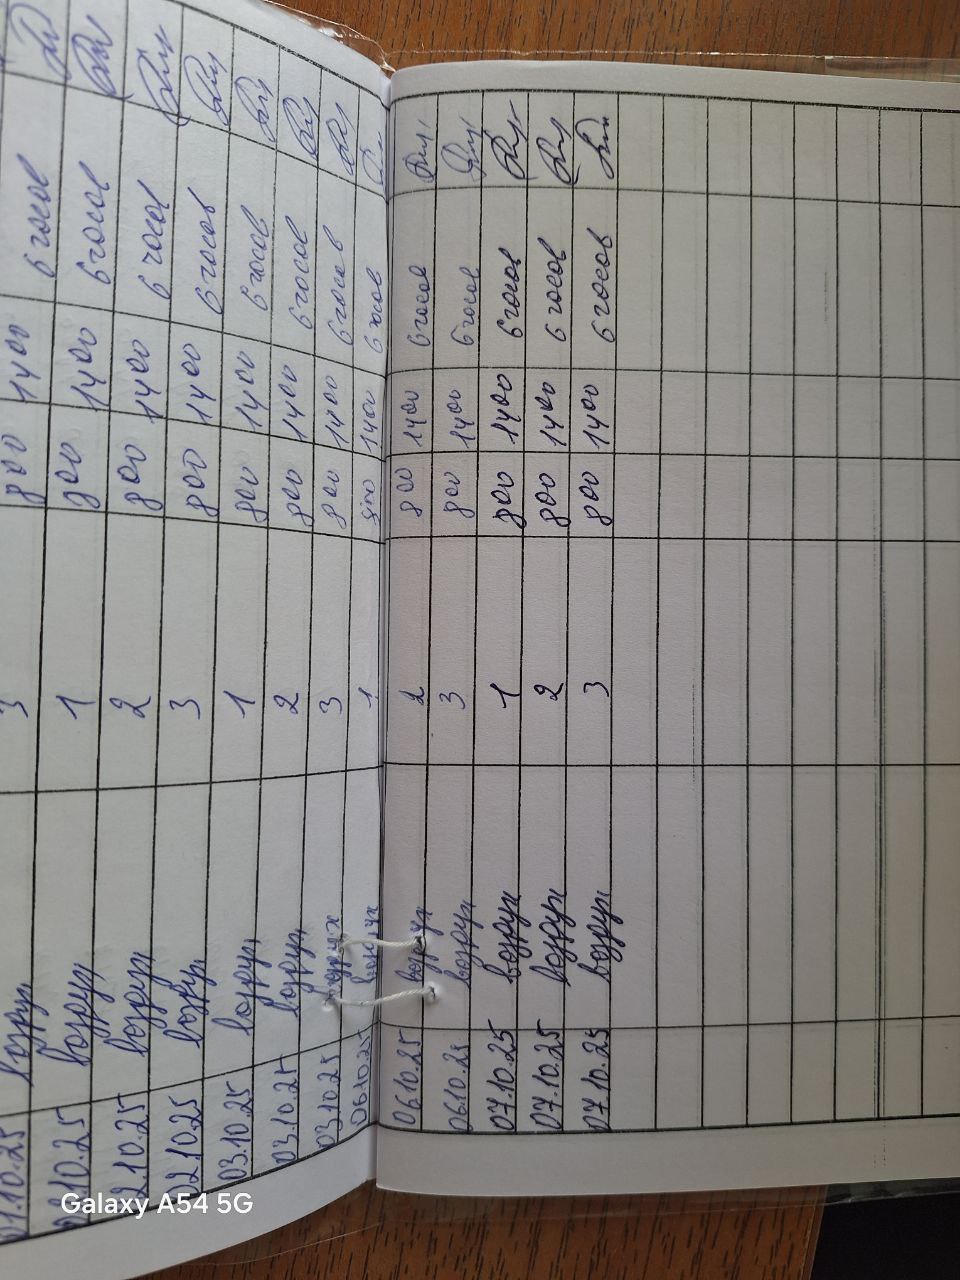 01.10.25 воздух 3 800 1400 6 часов
02.10.25 воздух 1 800 1400 6 часов
02.10.25 воздух 2 800 1400 6 часов
02.10.25 воздух 3 800 1400 6 часов
03.10.25 воздух 1 800 1400 6 часов
03.10.25 воздух 2 800 1400 6 часов
03.10.25 воздух 3 800 1400 6 часов
06.10.25 воздух 1 800 1400 6 часов
06.10.25 воздух 2 800 1400 6 часов
06.10.25 воздух 3 800 1400 6 часов
07.10.25 воздух 1 800 1400 6 часов
07.10.25 воздух 2 800 1400 6 часов
07.10.25 воздух 3 800 1400 6 часов
Galaxy A54 5G